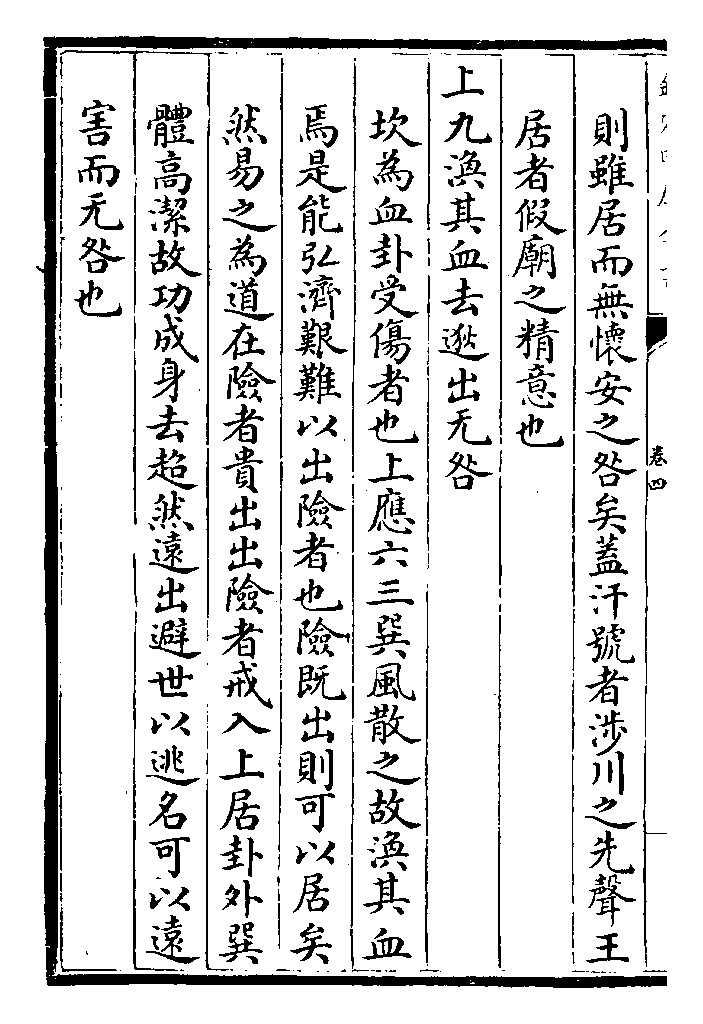 卷四
則雖居而無懷安之咎矣蓋汗號者涉川之先聲王
居者假廟之精意也
上九渙其血去逖出无咎
坎為血卦受傷者也上應六三巽風散之故渙其血
焉是能弘濟艱難以出險者也險既出則可以居矣
然易之為道在險者貴出出險者戒入上居卦外巽
體高潔故功成身去超然遠出避世以逃名可以遠
害而无咎也